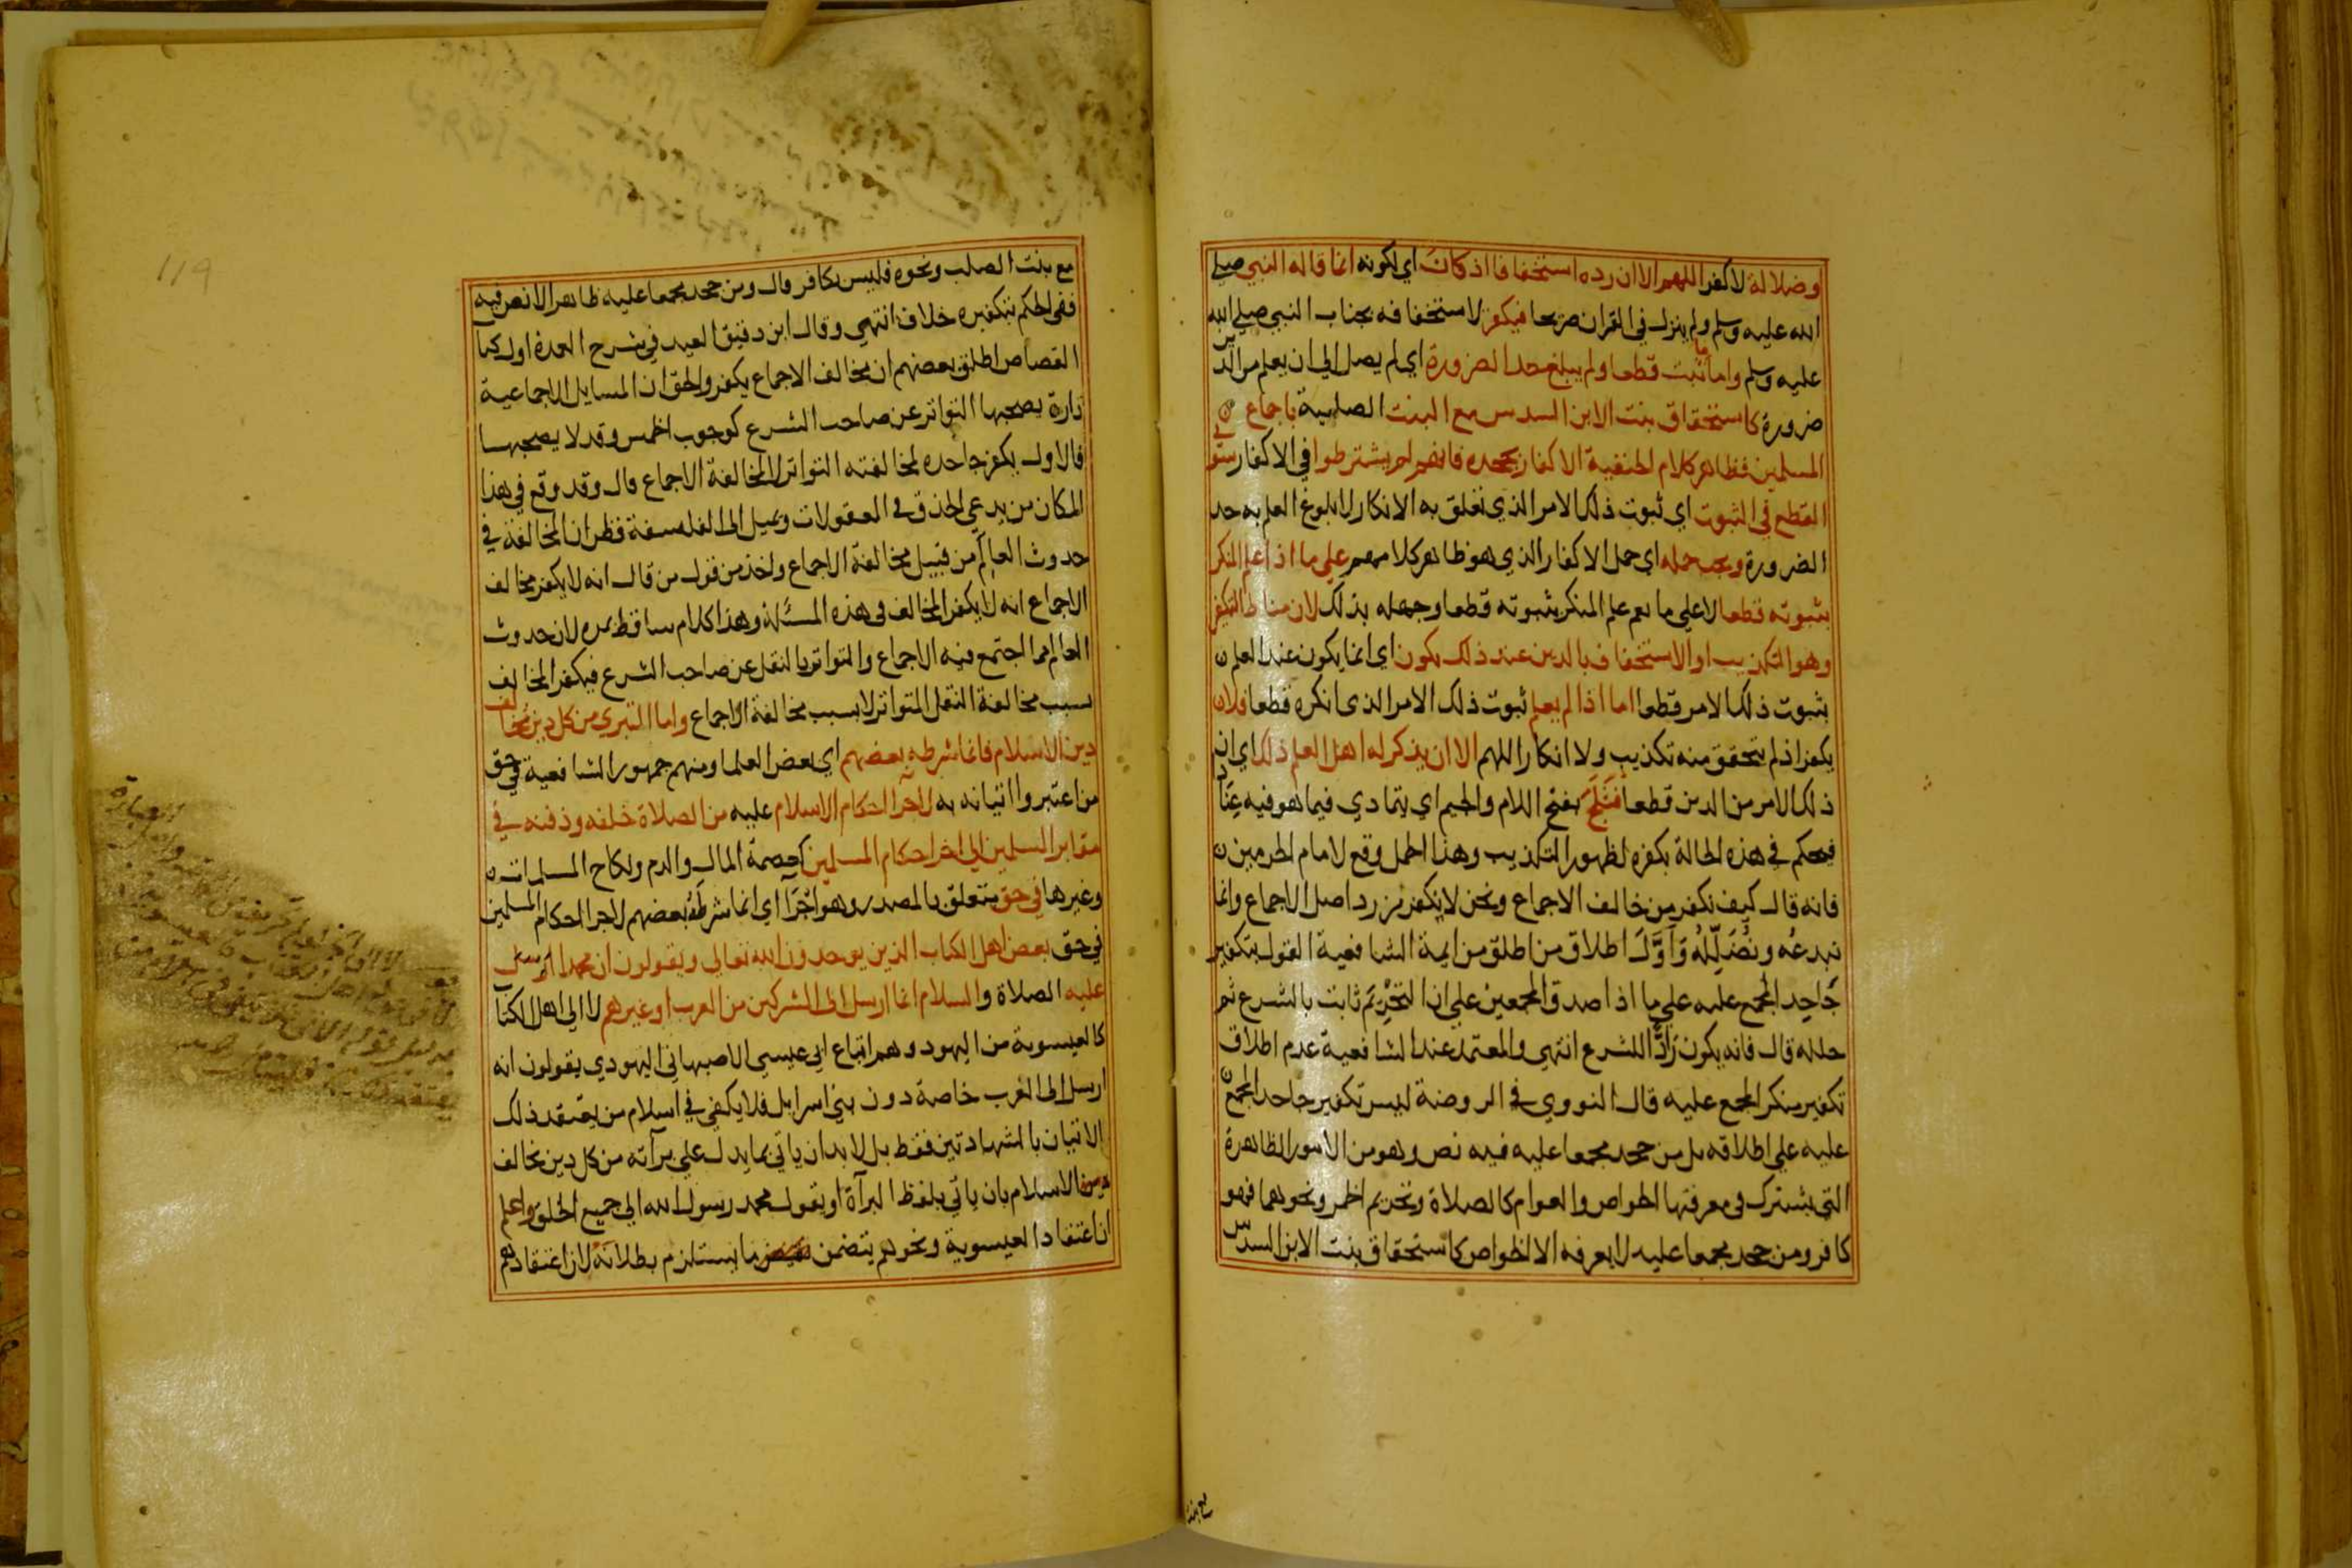 وضلالة لا كفر اللهم الا ان رده استخفافا اذ كان اي لكونه انما قاله النبي صلي
الله عليه وسلم ولم ينزل في القران صريحا فيكفر لاستخفافه بجناب النبي صلي الله
عليه وسلم واما ما ثبت قطعا ولم يبلغ حد الضرورة اي لم يصل الي ان يعلم من الدين
ضرورة كاستحقاق بنت الابن السدس مع البنت الصلبية باجماع
المسلمين فظاهر كلام الحنفية الاكفار بجحده فانهم لم يشترطوا في الاكفار سوي
القطع في الثبوت اي ثبوت ذلك الامر الذي تعلق به الانكار لا بلوغ العلم به حد
الضرورة ويجب حمله اي حمل الاكفار الذي هو ظاهر كلامهم علي ما اذا علم المنكر
بثبوته قطعا لا علي ما يعم علم المنكر بثبوته قطعا وجهله بذلك لان مناط التكفير
وهو التكذيب او الاستخفاف بالدين عند ذلك يكون اي انما يكون عند العلم
بثبوت ذلك الامر قطعا اما اذا لم يعلم ثبوت ذلك الامر الذي انكره قطعا فلا
يكفر اذ لم يتحقق منه تكذيب ولا انكار اللهم الا ان يذكر له اهل العلم ذلك اي ان
ذلك الامر من الدين قطعا فَيَلَجَّ بفتح اللام والجيم اي يتمادي فيما هو فيه عنادا
فيحكم في هذه الحالة بكفره لظهور التكذيب وهذا الحمل وقع لامام الحرمين
فانه قال كيف نكفر من خالف الاجماع ونحن لا نكفر من رد اصل الاجماع وانما
نبدعه ونُضَلِّلُه وَاَوَّلَ اطلاق من اطلق من ايمة الشافعية القول بتكفير
جَاحِد المجمع عليه علي ما اذا صدق المجمعين علي ان التحْرِيمَ ثابت بالشرع ثم
حلله قال فانه يكون رَادًّا للشرع انتهي والمعتمد عند الشافعية عدم اطلاق
تكفير منكر المجمع عليه قال النووي في الروضة ليس تكفير جاحد المجمع
عليه علي اطلاقه بل من جحد مجمعا عليه فيه نص وهو من الامور الظاهرة
التي يشترك في معرفتها الخواص والعوام كالصلاة وتحريم الخمر ونحوهما فهو
كافر ومن جحد مجمعا عليه لا يعرفه الا الخواص كاستحقاق بنت الابن السدس
مع بنت
119
مع بنت الصلب ونحوه فليس بكافر قال ومن جحد مجمعا عليه ظاهرا لا نص فيه
ففي الحكم بتكفيره خلاف انتهي وقال ابن دقيق العيد في شرح العمدة اول كتاب
القصاص اطلق بعضهم ان مخالف الاجماع يكفر والحق ان المسايل الاجماعية
تارة يصحبها التواتر عن صاحب الشرع كوجوب الخمس وقد لا يصحبها
فالاول يكفر جاحده لمخالفته التواتر لا لمخالفة الاجماع قال وقد وقع في هذا
المكان من يدعي الحذق في المعقولات ويميل الي الفلسفة فظن ان المخالفة في
حدوث العالم من قبيل مخالفة الاجماع واخذ من قول من قال انه لا يكفر مخالف
الاجماع انه لا يكفر المخالف في هذه المسئلة وهذا كلام ساقط بمره لان حدوث
العالم مما اجتمع فيه الاجماع والتواتر بالنقل عن صاحب الشرع فيكفر المخالف
بسبب مخالفة النقل المتواتر لا بسبب مخالفة الاجماع واما التبري من كل دين يخالف
دين الاسلام فانما شرطه بعضهم اي بعض العلما ومنهم جمهور الشافعية في حق
من اعتبروا اتيانه به لاجرا احكام الاسلام عليه من الصلاة خلفه ودفنه في
مقابر المسلمين الي اخر احكام المسلمين كعصمة المال والدم ونكاح المسلمات
وغيرها في حق متعلق بالمصدر وهو اجْرَا اي انما شرطه بعضهم لاجرا احكام المسلمين
في حق بعض اهل الكتاب الذين يوحدون الله تعالي ويقولون ان محمدا ارسل
عليه الصلاة والسلام انما ارسل الي المشركين من العرب او غيرهم لا الي اهل الكتاب
كالعيسوية من اليهود وهم اتباع ابي عيسي الاصبهاني اليهودي يقولون انه
ارسل الي العرب خاصة دون بني اسرايل فلا يكفي في اسلام من يعتقد ذلك
الاتيان بالشهادتين فقط بل لا بد ان ياتي بما يدل علي برآته من كل دين يخالف
دين الاسلام بان ياتي بلفظ البرآة او يقول محمد رسول الله الي جميع الخلق واعلم
ان اعتقاد العيسوية ونحوهم يتضمن ما يستلزم بطلانه لان اعتقادهم